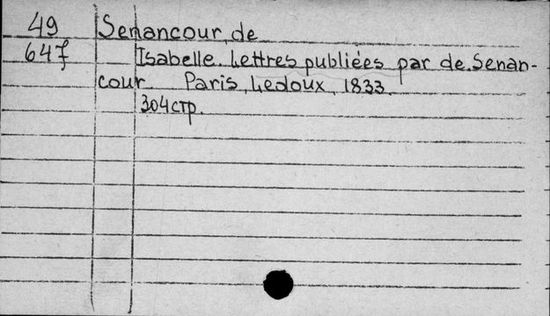 49 Senancour, de
647 Isabelle. Lettres publiées par de Senan-
cour Paris, Ledoux, 1833.
304 стр.